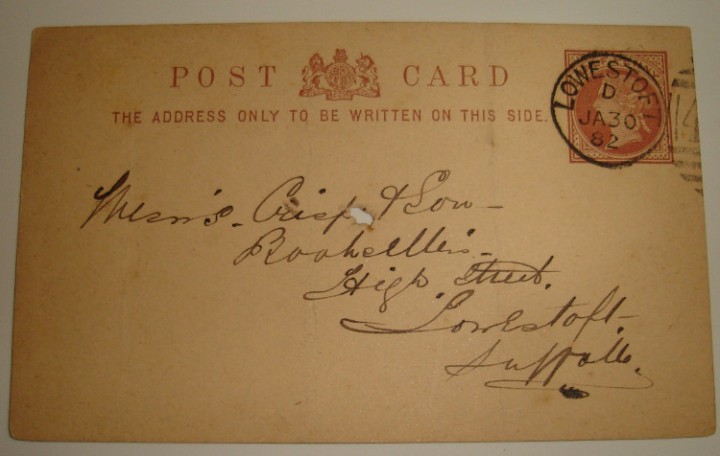 POST CARD
THE ADDRESS ONLY TO BE WRITTEN ON THIS SIDE.
LOWESTOFT
D
JA30
82
Messrs. Crisp & Son
Booksellers
High Street.
Lowestoft.
Suffolk.